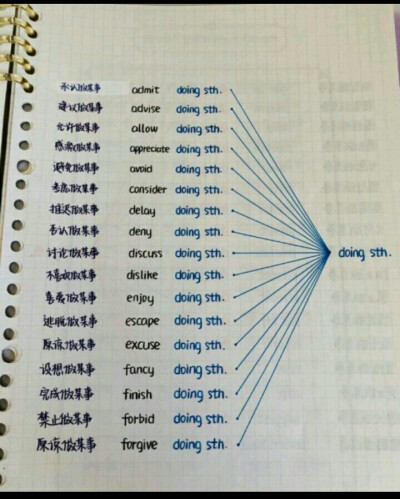 承认做某事 admit doing sth.
建议做某事 advise doing sth.
允许做某事 allow doing sth.
感激做某事 appreciate doing sth.
避免做某事 avoid doing sth.
考虑做某事 consider doing sth.
推迟做某事 delay doing sth.
否认做某事 deny doing sth.
讨论做某事 discuss doing sth. doing sth.
不喜欢做某事 dislike doing sth.
喜爱做某事 enjoy doing sth.
逃脱做某事 escape doing sth.
原谅做某事 excuse doing sth.
设想做某事 fancy doing sth.
完成做某事 finish doing sth.
禁止做某事 forbid doing sth.
原谅做某事 forgive doing sth.